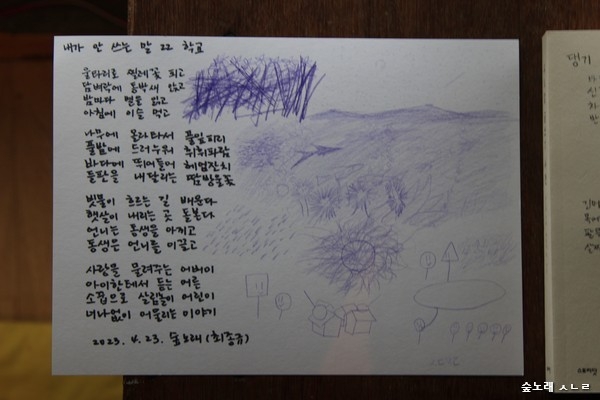 내가 안 쓰는 말 22 학교
울타리로 찔레꽃 피고
담벼락에 동박새 앉고
밤마다 별을 읽고
아침에 이슬 먹고
나무에 올라타서 풀잎피리
풀밭에 드러누워 휘휘파람
바다에 뛰어들며 헤엄잔치
들판을 내달리는 땀방울꽃
빗물이 흐르는 길 배운다
햇살이 내리는 곳 돌본다
언니는 동생을 아끼고
동생은 언니를 이끌고
사랑을 물려주는 어버이
아이한테서 듣는 어른
소꿉으로 살림놀이 어린이
너나없이 어울리는 이야기
2023. 4. 23. 숲노래 (최종규)
댕기
숲노래 ㅅㄴㄹ